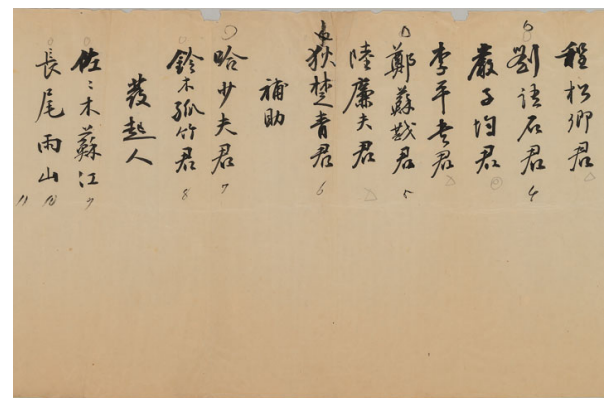 程松卿君
劉語石君 4
嚴子均君
李平書君
鄭蘇戡君 5
陸廉夫君
狄楚青君 6
補助
哈少夫君 7
鈴木孤竹君 8
發起人
佐々木蘇江 9
長尾雨山 10
11